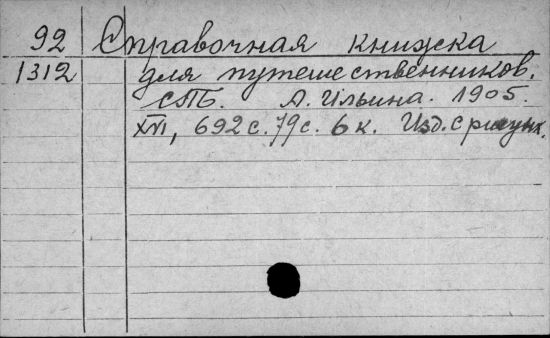 92 Справочная книжка
1312 для путешественников.
СПБ. А. Ильина. 1905.
XVI, 692 с. 79 с. 6 к. Изд. с рисунк.